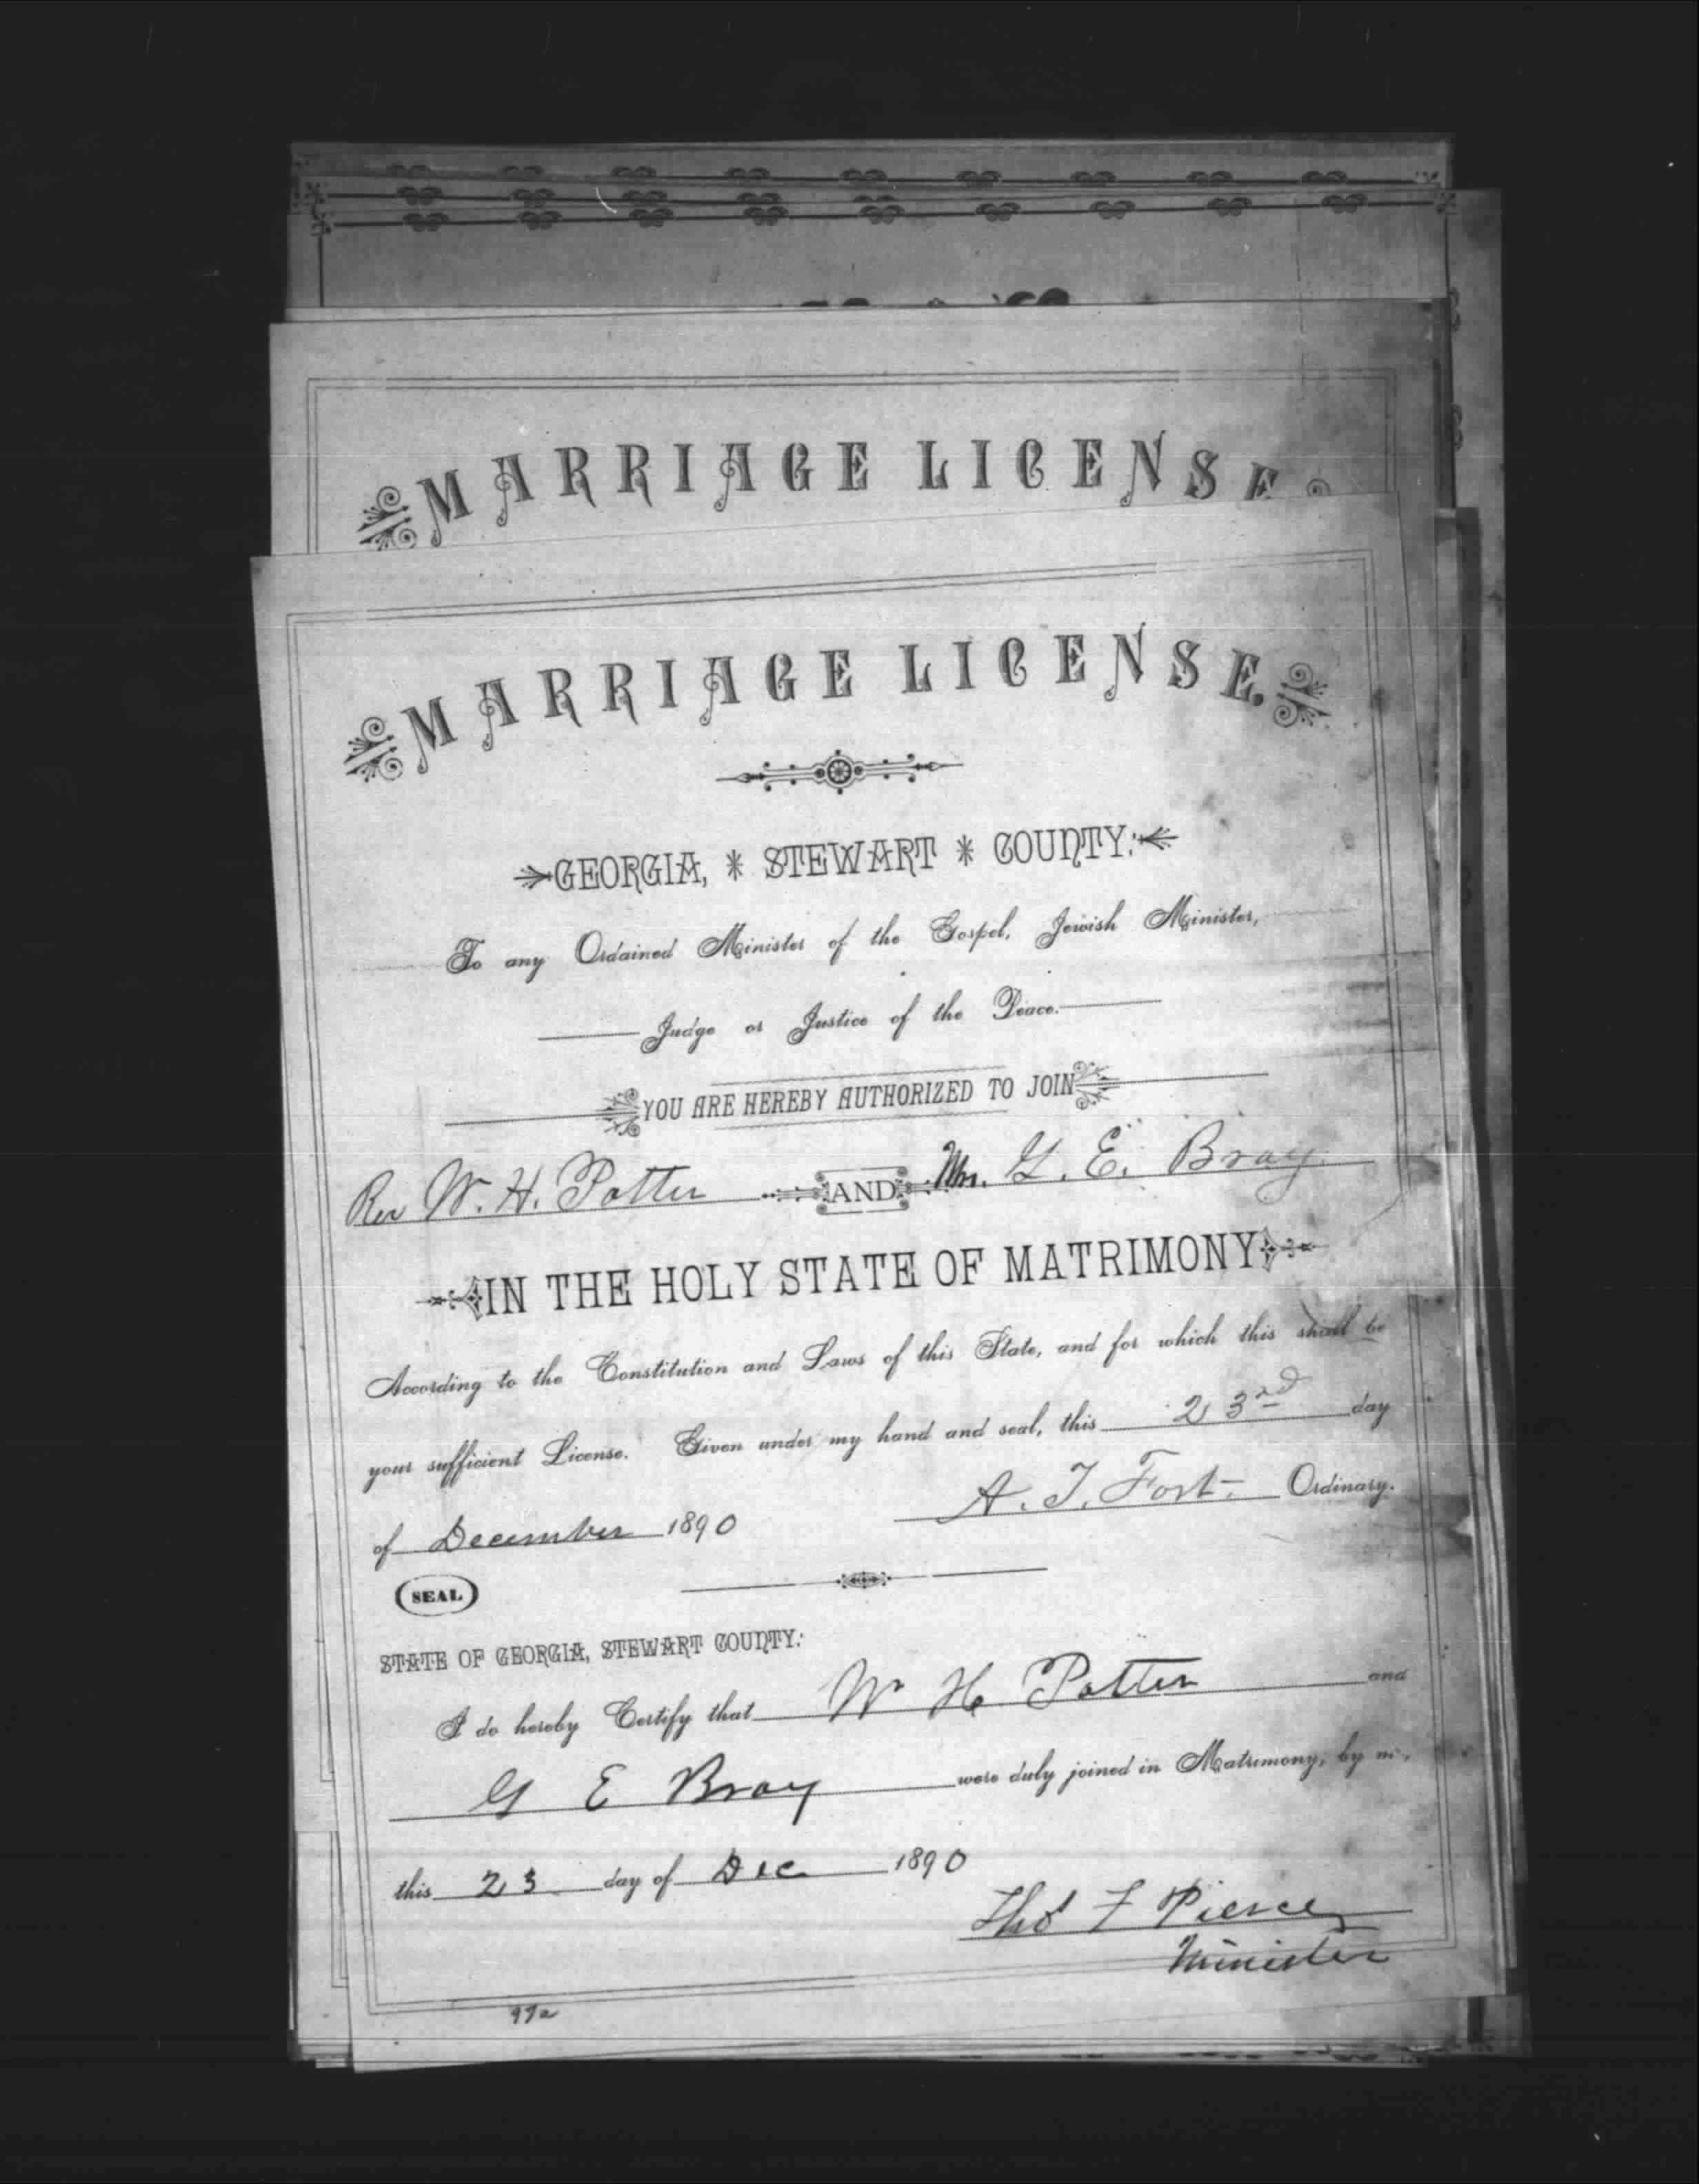 MARRIAGE LICENSE
MARRIAGE LICENSE.
GEORGIA, * STEWART * COUNTY:
To any Ordained Minister of the Gospel, Jewish Minister,
Judge or Justice of the Peace.
YOU ARE HEREBY AUTHORIZED TO JOIN
Rev W. H. Potter AND Mrs. G. E. Bray.
IN THE HOLY STATE OF MATRIMONY
According to the Constitution and Laws of this State, and for which this shall be
your sufficient License. Given under my hand and seal, this 23rd day
of December 1890 A. T. Fort Ordinary.
SEAL
STATE OF GEORGIA, STEWART COUNTY:
I do hereby Certify that W H Potter and
G E Bray were duly joined in Matrimony, by me,
this 23 day of Dec 1890
Thos F Pierce
Minister